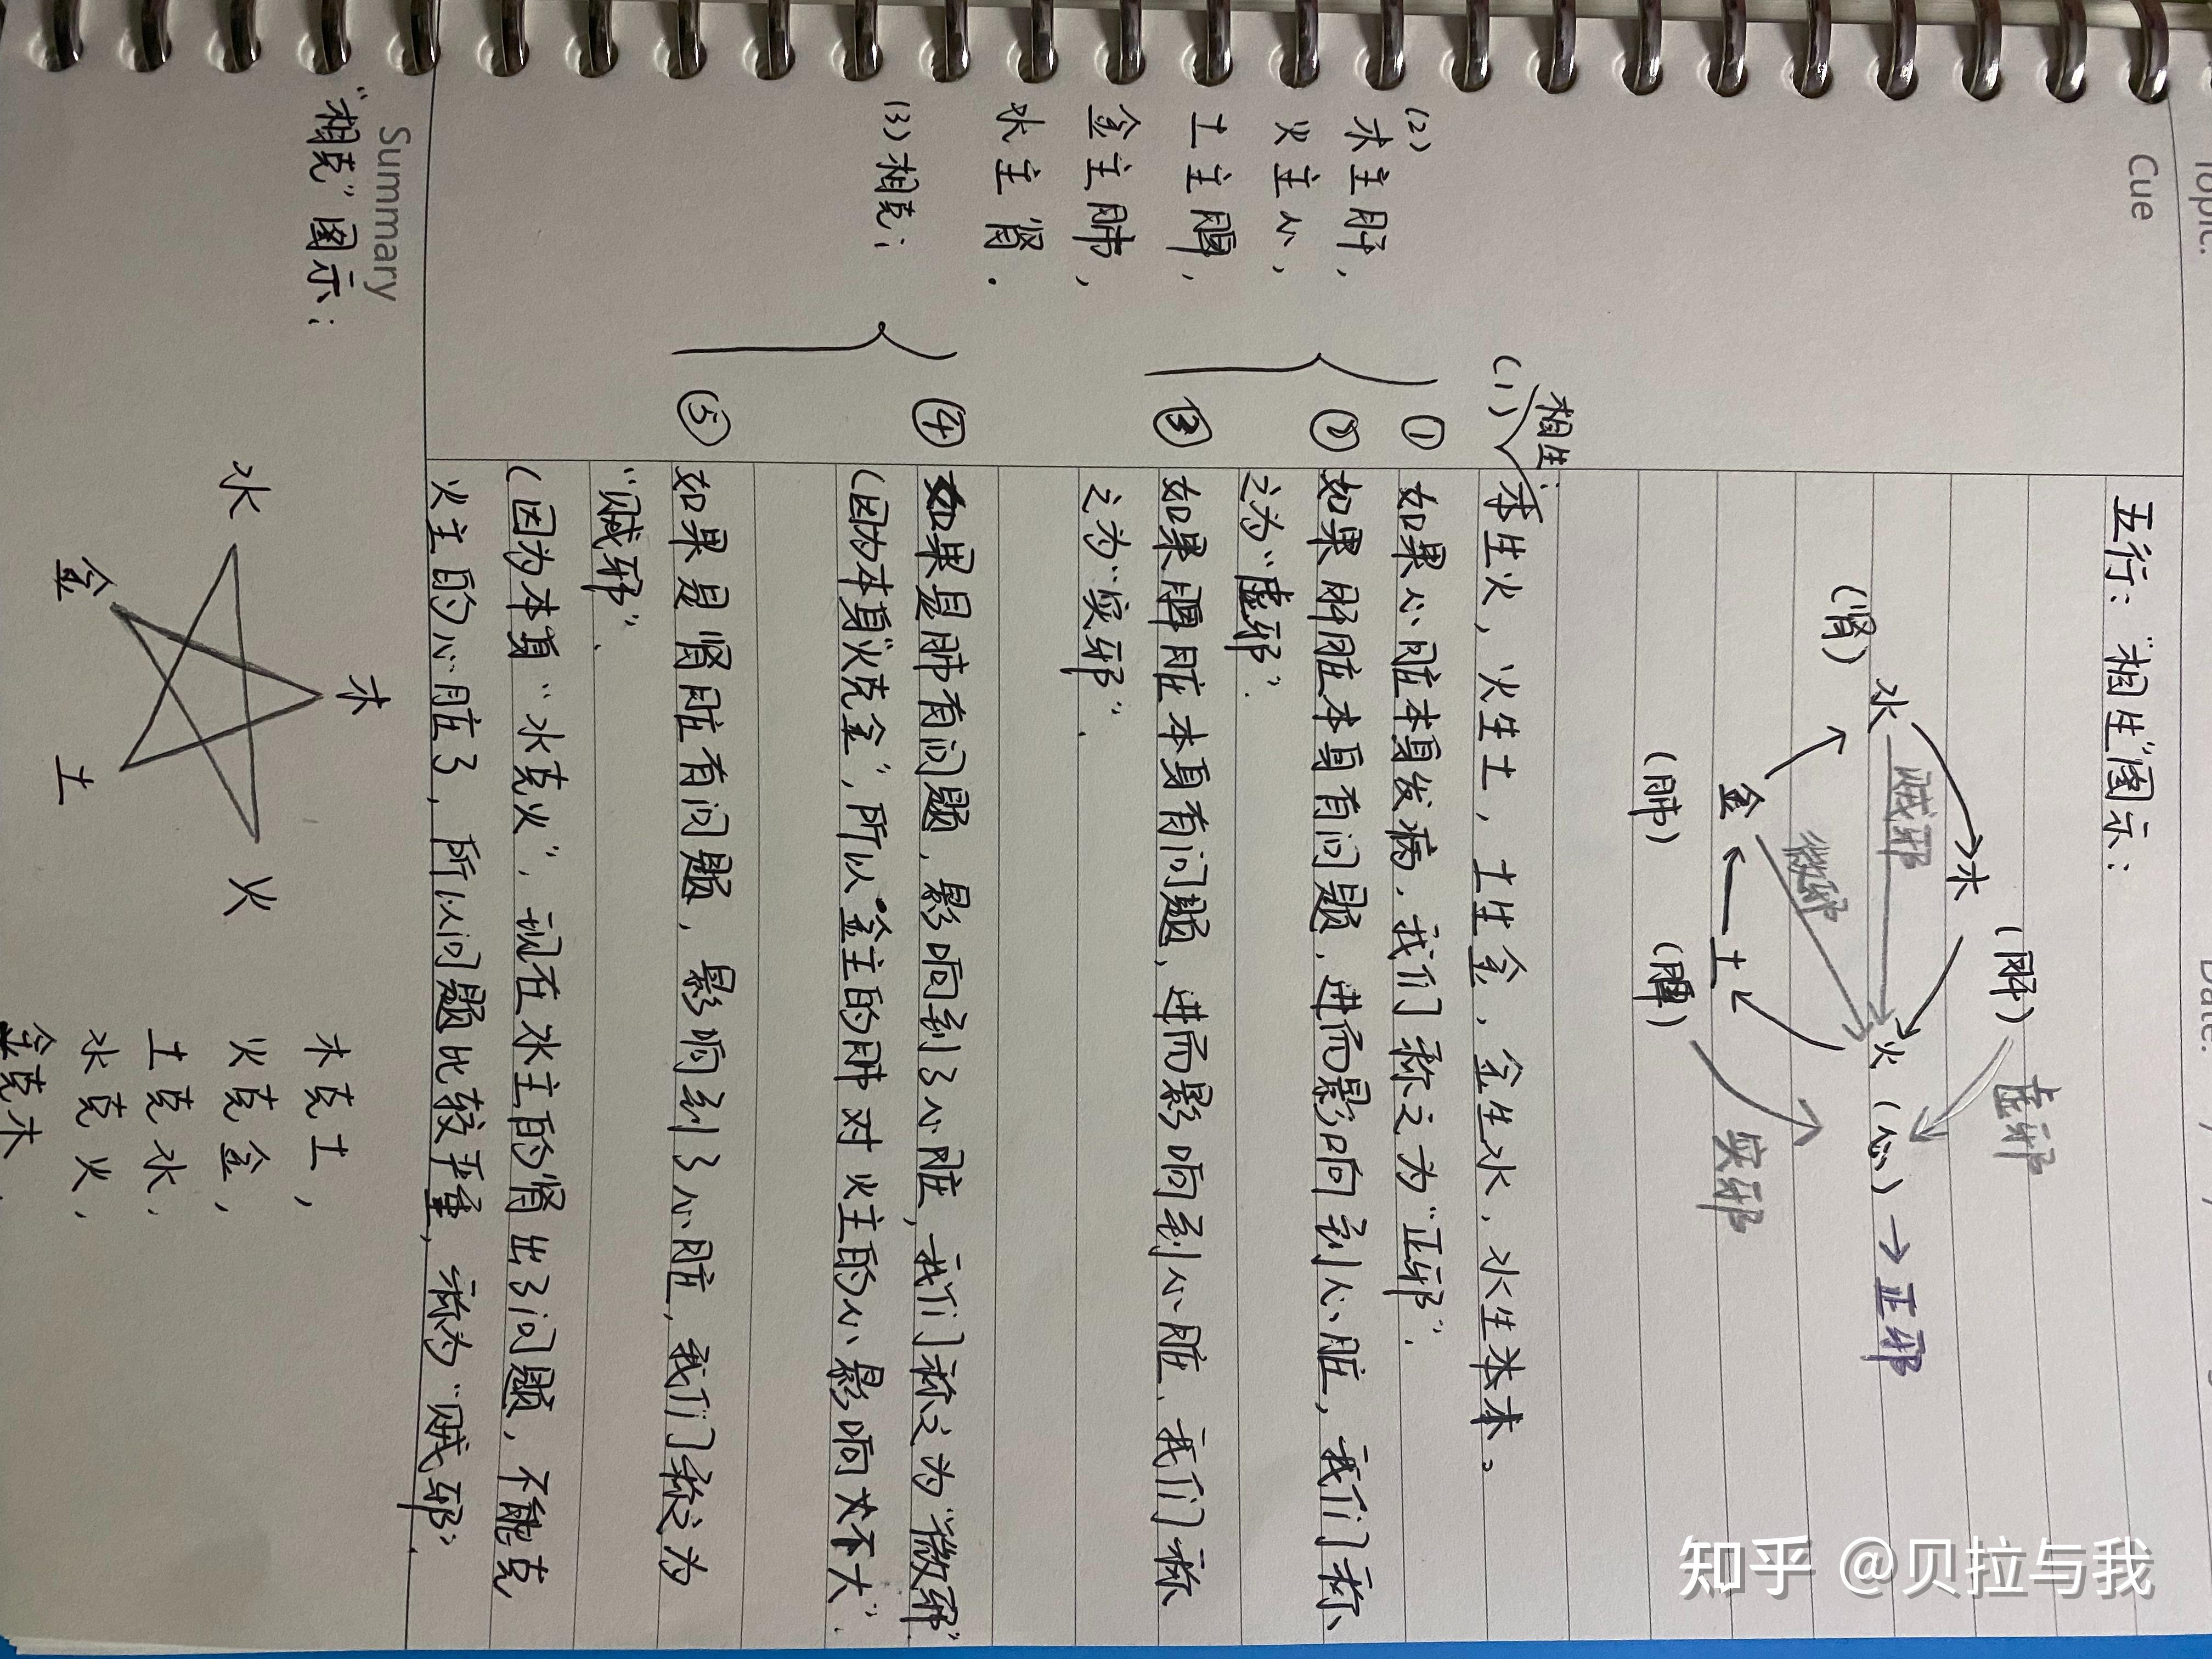 Topic:
Date:
Cue
五行：“相生”图示：
（肝）
虚邪
木
水
贼邪
火
（心）→正邪
（肾）
微邪
金
土
实邪
（肺）
（脾）
相生：
（1）
木生火，火生土，土生金，金生水，水生木。
（2）
木主肝，
火主心，
土主脾，
金主肺，
水主肾.
① 如果心脏本身发病，我们称之为“正邪”.
② 如果肝脏本身有问题，进而影响到心脏，我们称
之为“虚邪”.
③ 如果脾脏本身有问题，进而影响到心脏、我们称
之为“实邪”.
（3）相克：
④ 如果是肺有问题，影响到了心脏，我们称之为“微邪”.
（因为本身“火克金”，所以金主的肺对火主的心影响不大”.
⑤ 如果是肾脏有问题，影响到了心脏，我们称之为
“贼邪”.
（因为本身“水克火”，现在水主的肾出了问题，不能克
火主的心脏了，所以问题比较严重，称为“贼邪”.
Summary
“相克”图示：
木
水
火
金
土
木克土，
火克金，
土克水，
水克火，
金克木.
知乎 @贝拉与我